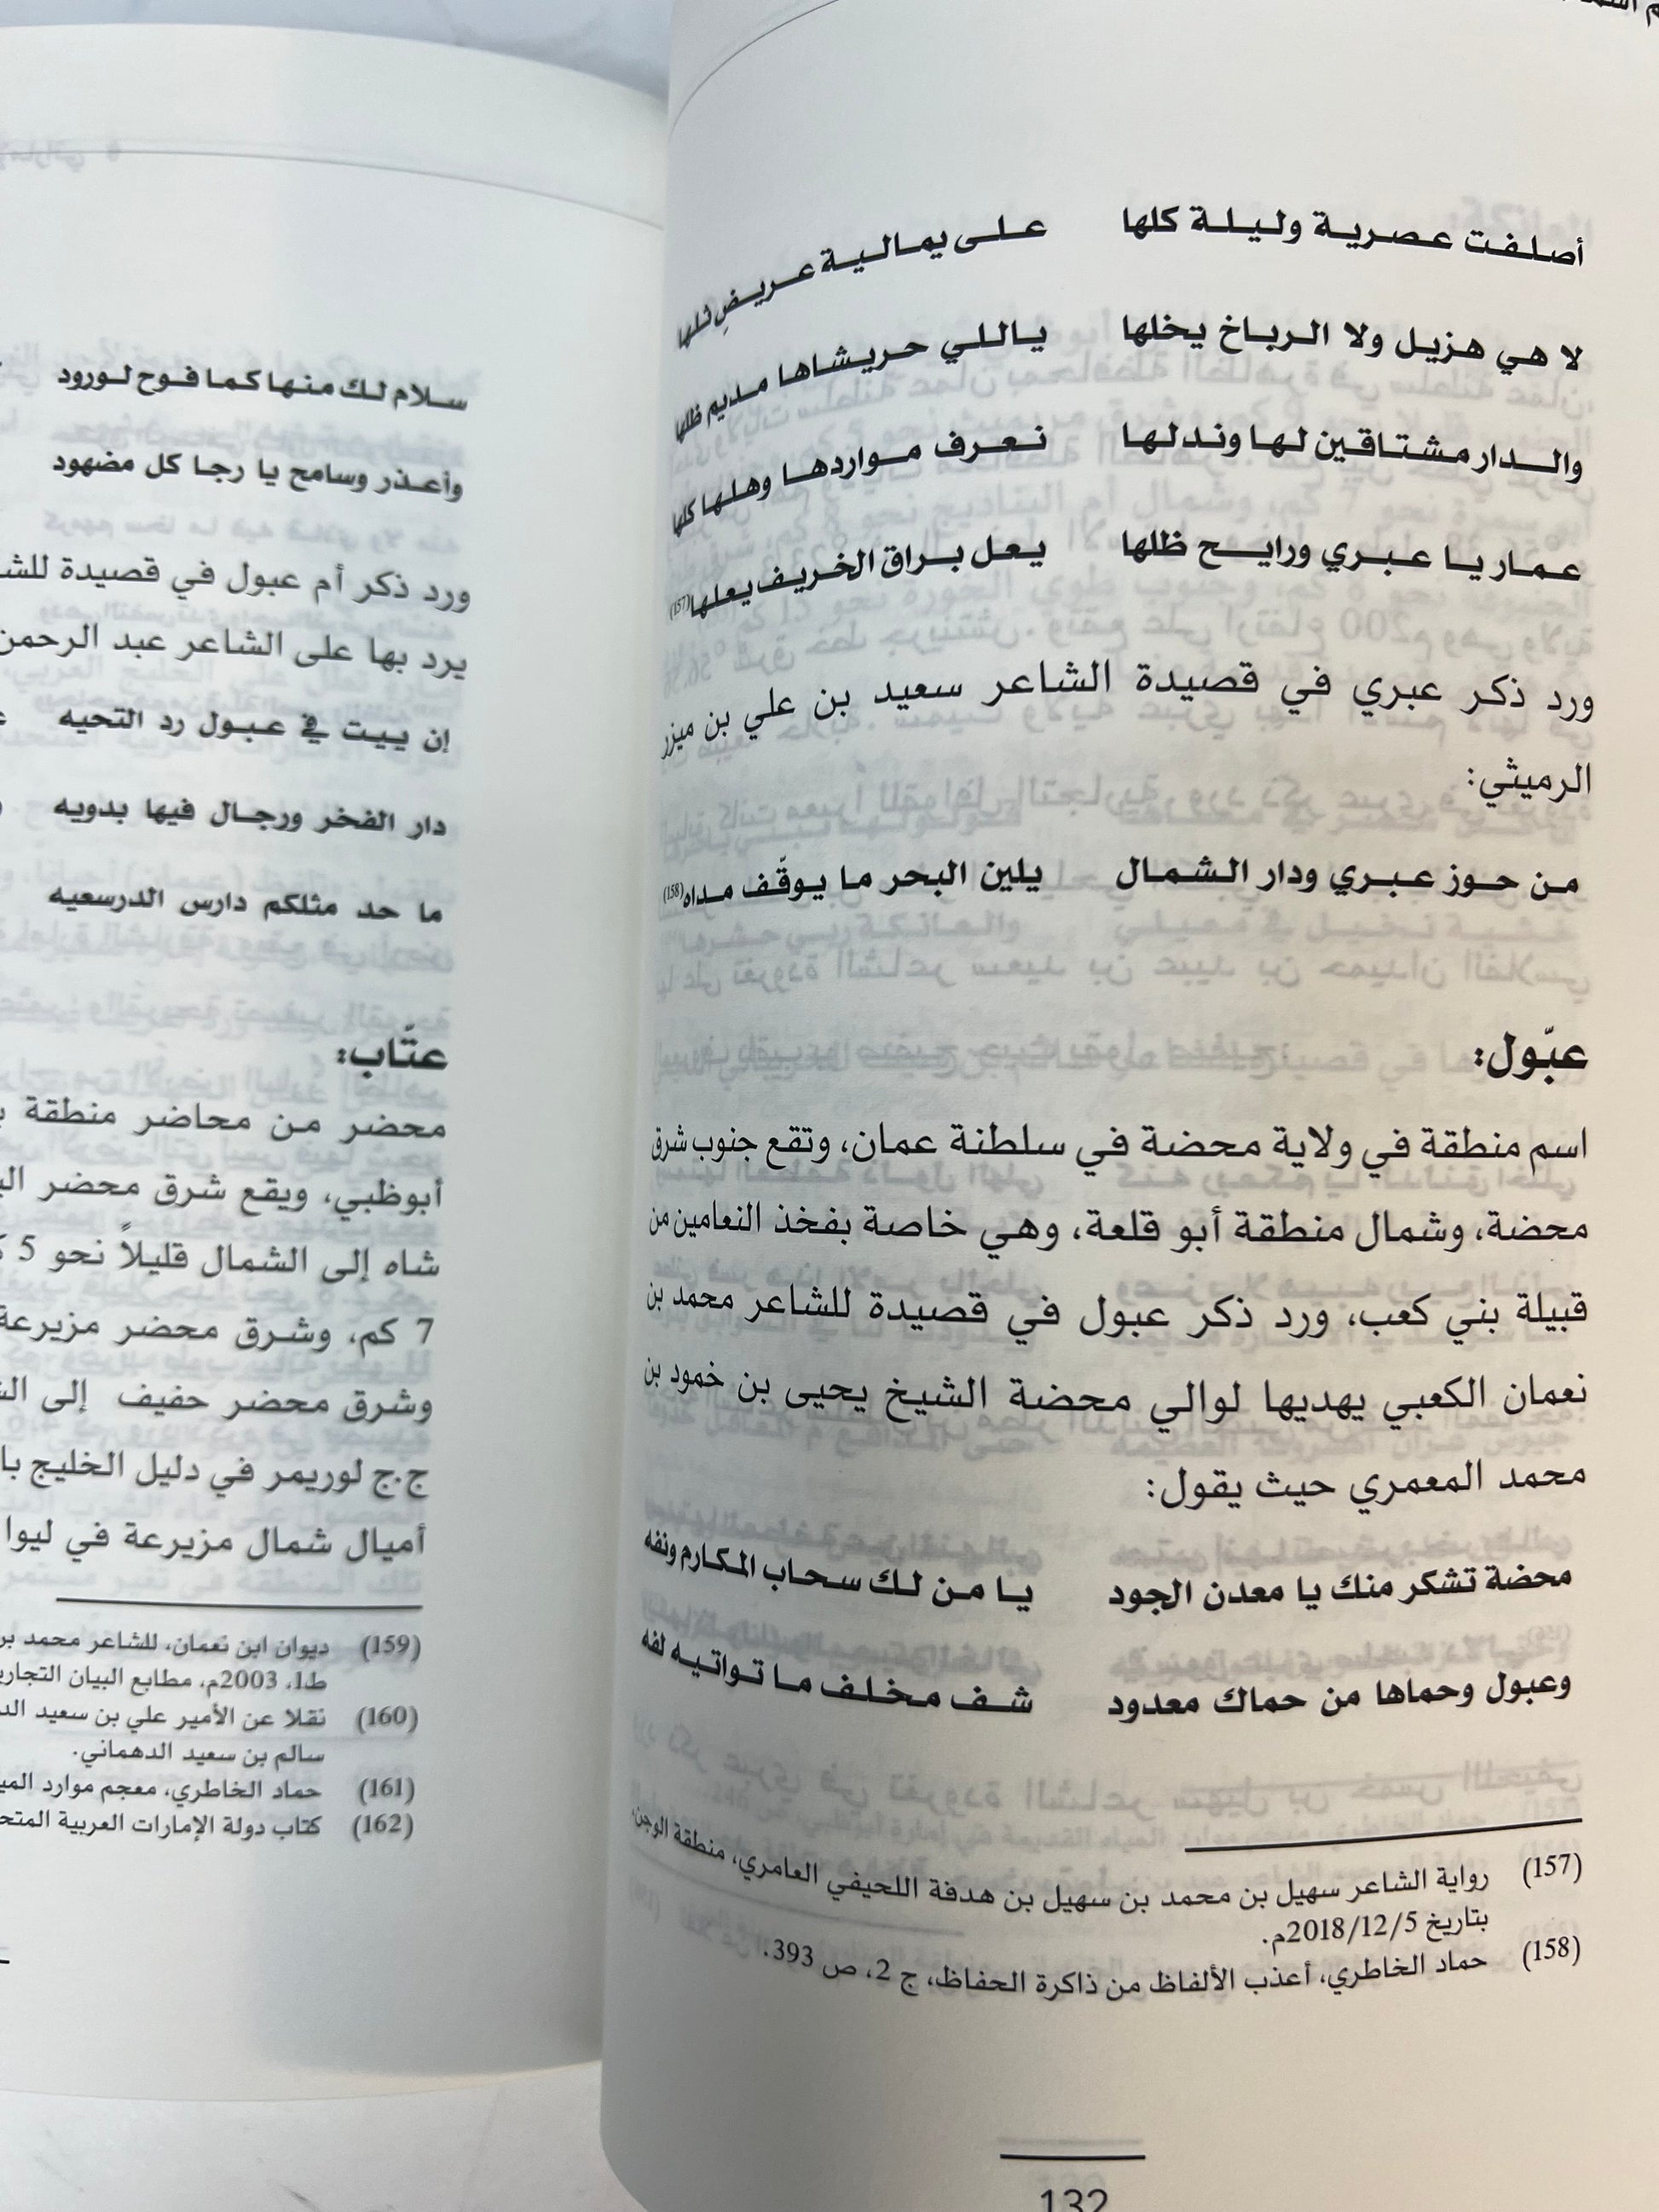 أصلفت عصرية وليلة كلها على يمالية عريضٍ ثلها
لا هي هزيل ولا الرباخ يخلها ياللي حريشاها مديم ظلها
والدار مشتاقين لها وندلها نعرف مواردها وهلها كلها
عمار يا عبري ورايح ظلها يعل براق الخريف يعلها(157)
ورد ذكر عبري في قصيدة الشاعر سعيد بن علي بن ميزر
الرميثي:
من حوز عبري ودار الشمال يلين البحر ما يوقّف مداه(158)
عبّول:
اسم منطقة في ولاية محضة في سلطنة عمان، وتقع جنوب شرق
محضة، وشمال منطقة أبو قلعة، وهي خاصة بفخذ النعامين من
قبيلة بني كعب، ورد ذكر عبول في قصيدة للشاعر محمد بن
نعمان الكعبي يهديها لوالي محضة الشيخ يحيى بن خمود بن
محمد المعمري حيث يقول:
محضة تشكر منك يا معدن الجود يا من لك سحاب المكارم ونفه
وعبول وحماها من حماك معدود شف مخلف ما تواتيه لفه
(157) رواية الشاعر سهيل بن محمد بن سهيل بن هدفة اللحيفي العامري، منطقة الوجن،
بتاريخ 2018/12/5م.
(158) حماد الخاطري، أعذب الألفاظ من ذاكرة الحفاظ، ج 2، ص 393.
132
سلام لك منها كما فوح لورود
وأعذر وسامح يا رجا كل مضهود
ورد ذكر أم عبول في قصيدة
يرد بها على الشاعر عبد الرحمن
إن ييت في عبول رد التحيه
دار الفخر ورجال فيها بدويه
ما حد مثلكم دارس الدرسعيه
عتّاب:
محضر من محاضر منطقة
أبوظبي، ويقع شرق محضر
شاه إلى الشمال قليلاً نحو 5
7 كم، وشرق محضر مزيرعة
وشرق محضر حفيف إلى
ج.ج لوريمر في دليل الخليج
أميال شمال مزيرعة في ليوا
(159) ديوان ابن نعمان، للشاعر محمد
ط1، 2003م، مطابع البيان
(160) نقلا عن الأمير علي بن سعيد
سالم بن سعيد الدهماني.
(161) حماد الخاطري، معجم موارد
(162) كتاب دولة الإمارات العربية